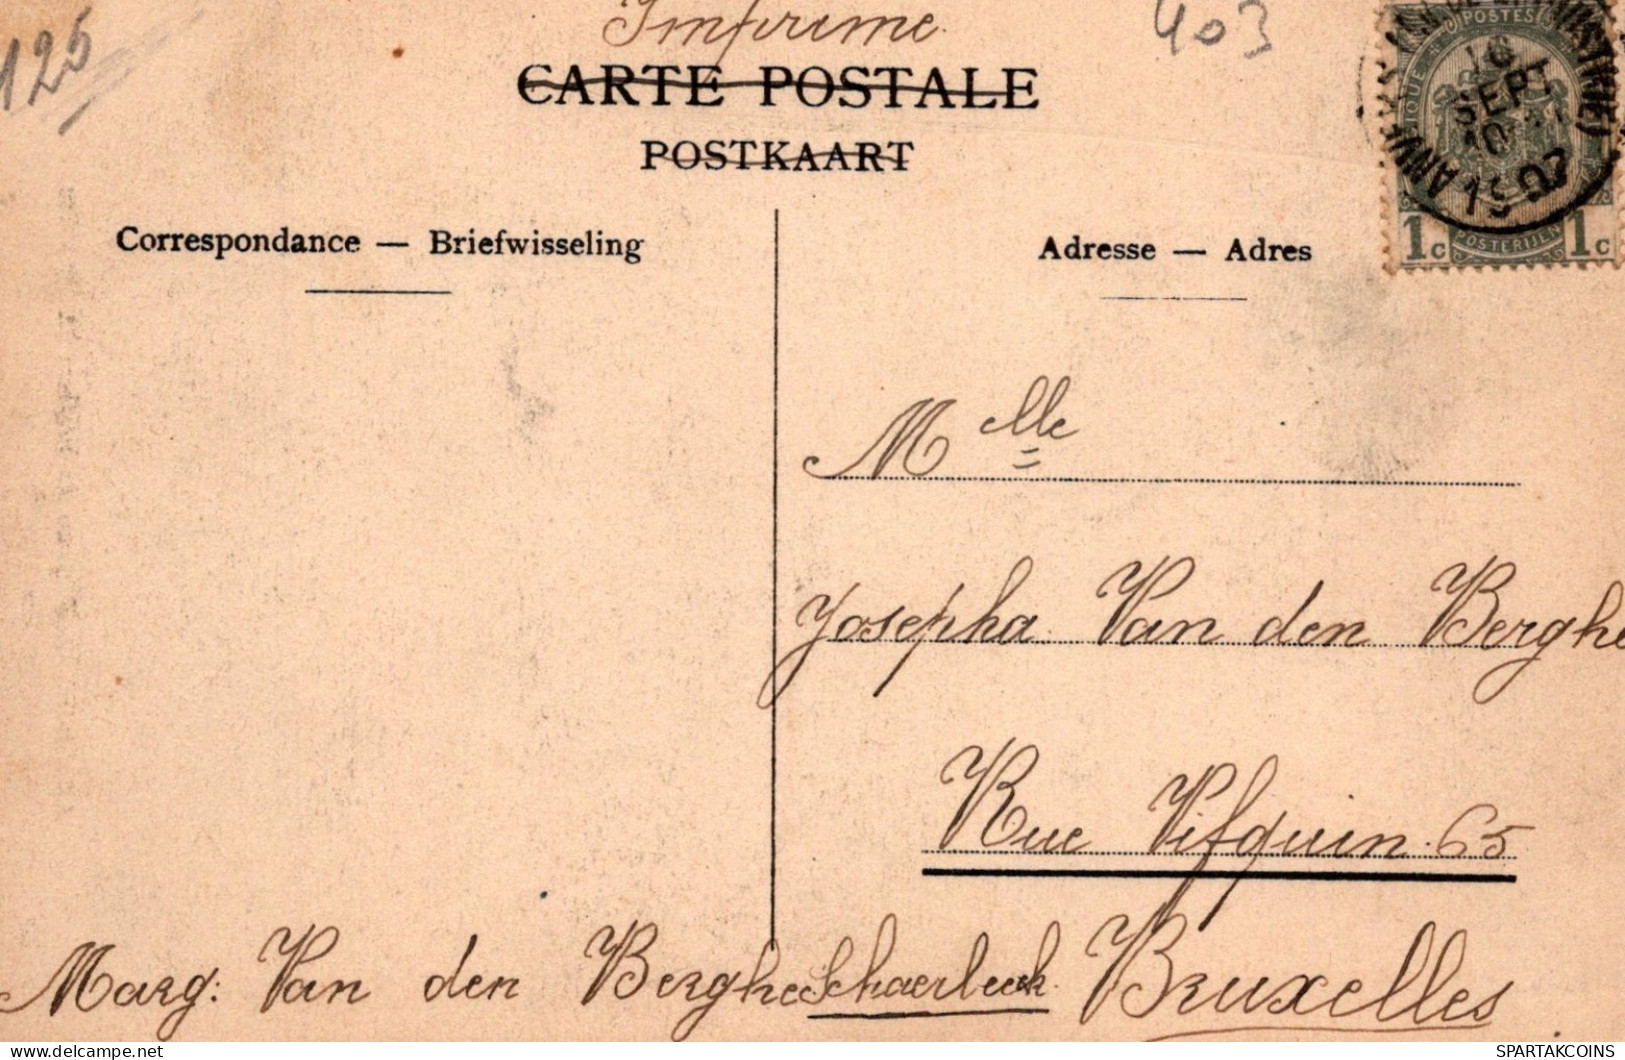 Imprimé
403
125
CARTE POSTALE
POSTKAART
POSTES
ANVERS
10
SEPT
10
1907
1c POSTERIJEN 1c
Correspondance — Briefwisseling
Adresse — Adres
Mlle
Josepha Van den Berghe
Rue Vifquin 65
Marg: Van den Berghe Schaerbeek Bruxelles
SPARTAKCOINS